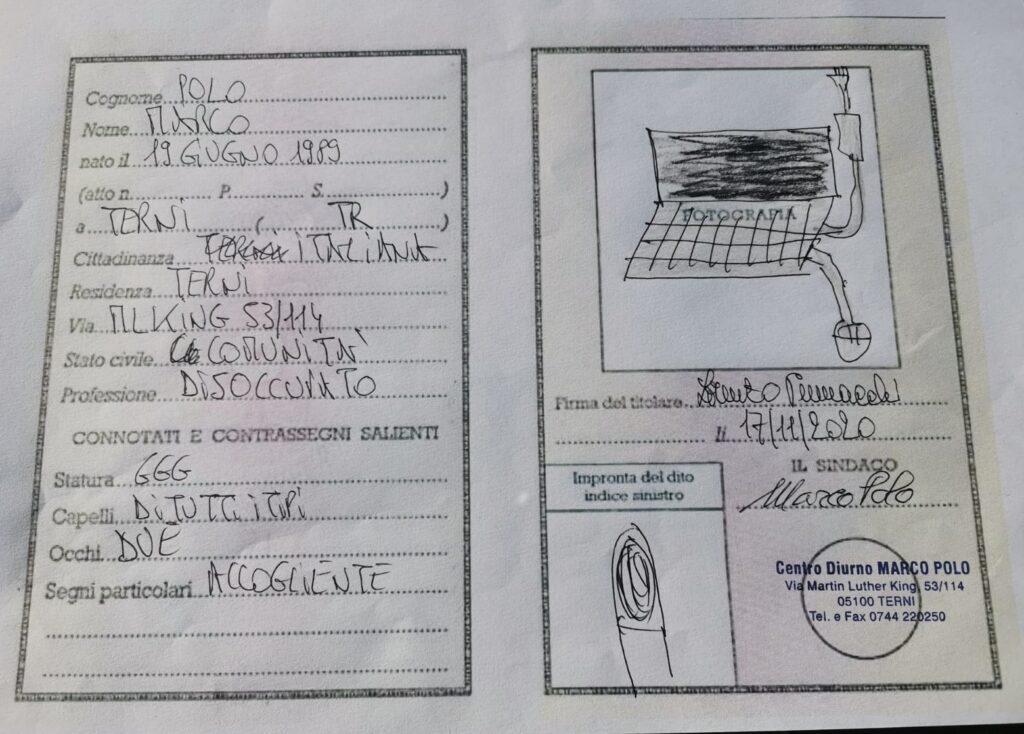 Cognome POLO
Nome MARCO
nato il 19 GIUGNO 1989
(atto n. P. S. )
a TERNI ( TR )
Cittadinanza ITALIANA
Residenza TERNI
Via M.L KING 53/114
Stato civile COMUNITA'
Professione DISOCCUPATO
CONNOTATI E CONTRASSEGNI SALIENTI
Statura GGG
Capelli DI TUTTI I TIPI
Occhi DUE
Segni particolari ACCOGLIENTE
FOTOGRAFIA
Firma del titolare Lorenzo
li 17/12/2020
IL SINDACO
Marco Polo
Impronta del dito
indice sinistro
Centro Diurno MARCO POLO
Via Martin Luther King, 53/114
05100 TERNI
Tel. e Fax 0744 220250